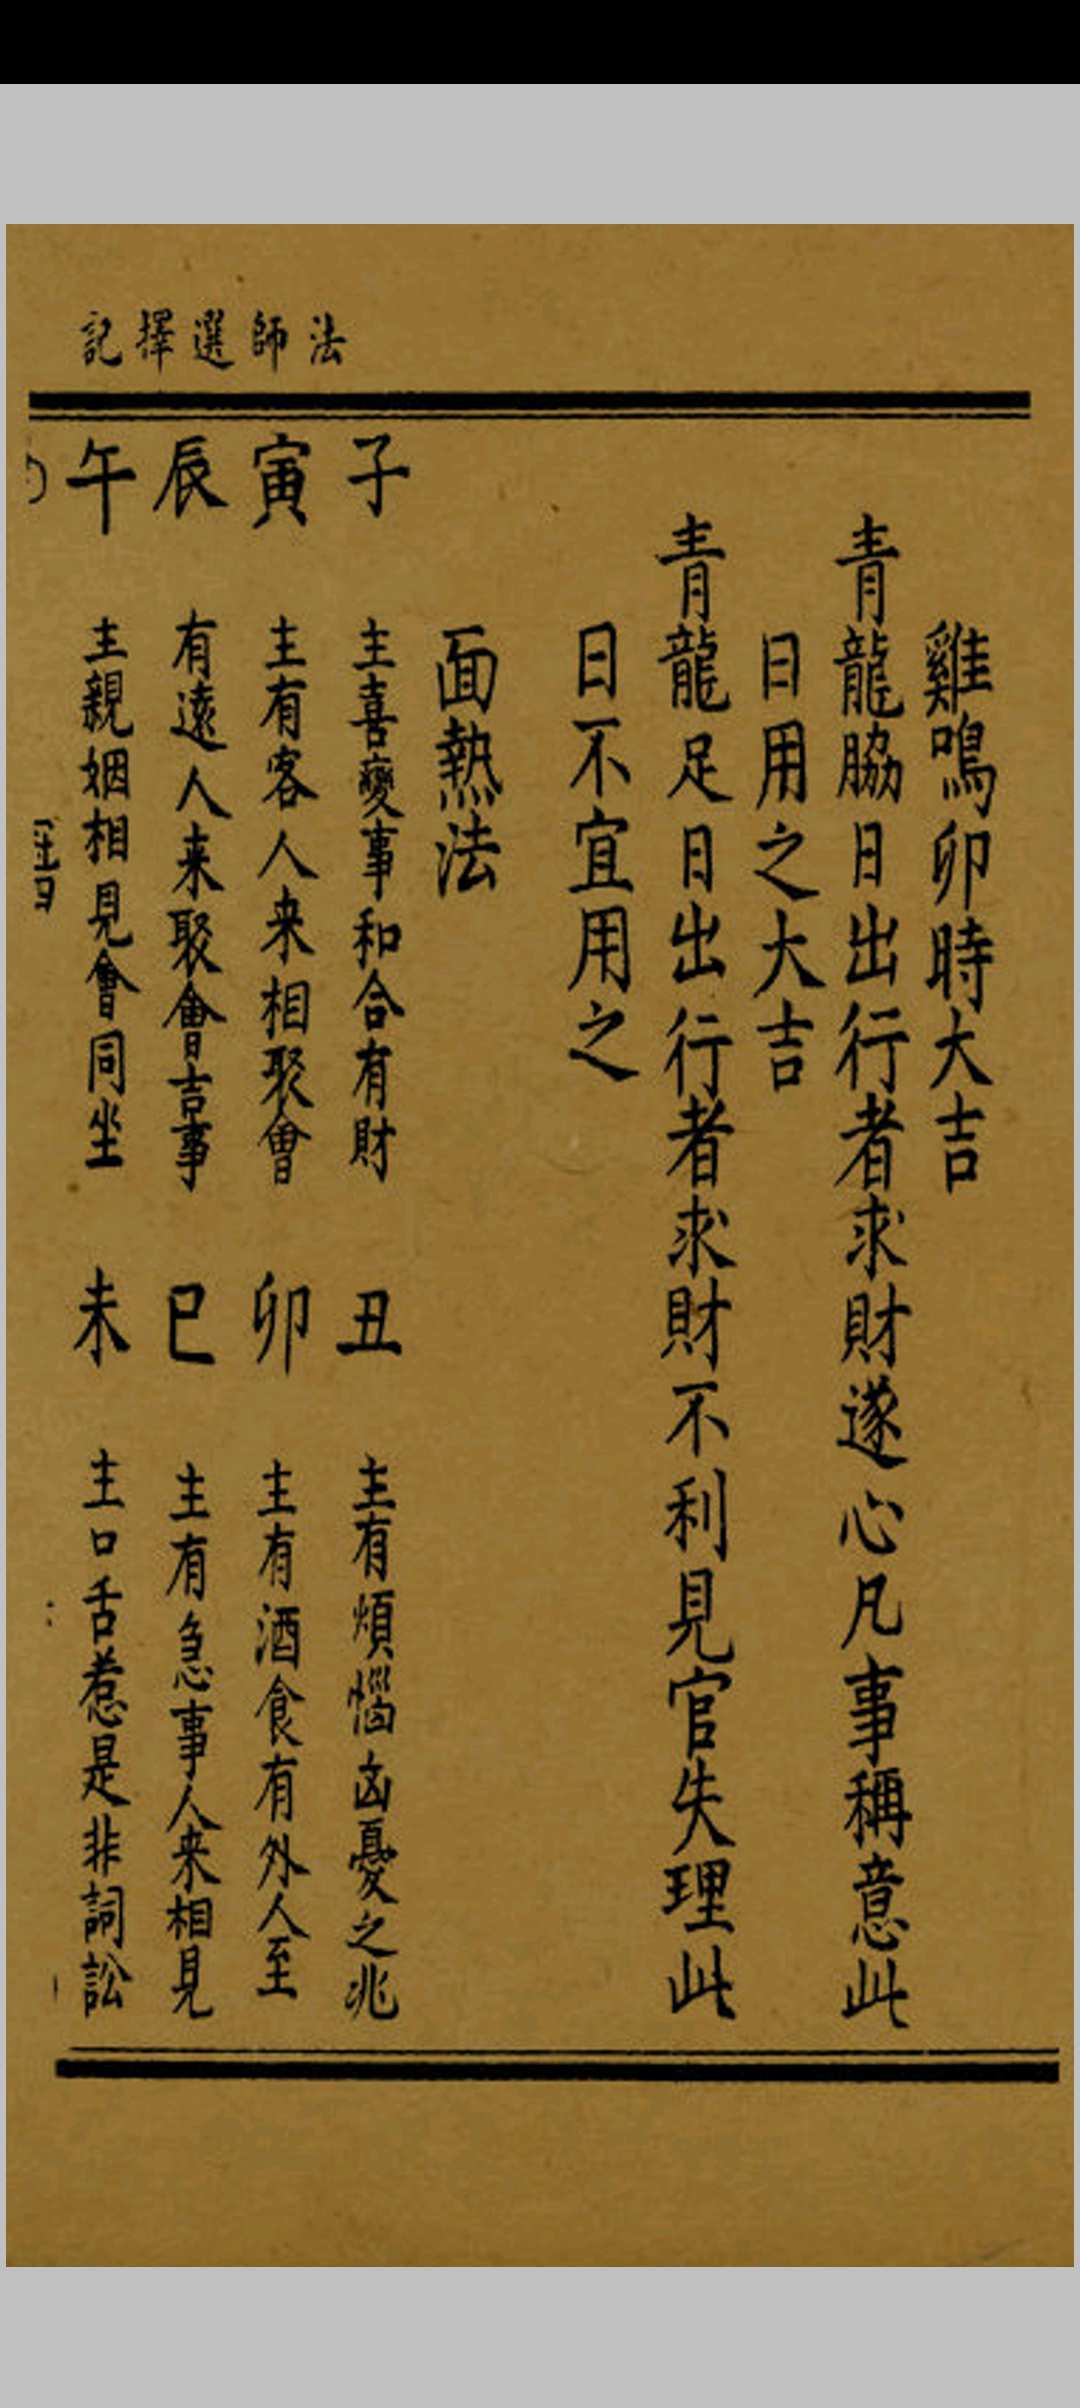 法師選擇記
雞鳴卯時大吉
青龍脇日出行者求財遂心凡事稱意此
日用之大吉
青龍足日出行者求財不利見官失理此
日不宜用之
面熱法
子 主喜變事和合有財 丑 主有煩惱凶憂之兆
寅 主有客人来相聚會 卯 主有酒食有外人至
辰 有遠人来聚會吉事 巳 主有急事人来相見
午 主親姻相見會同坐 未 主口舌惹是非詞訟